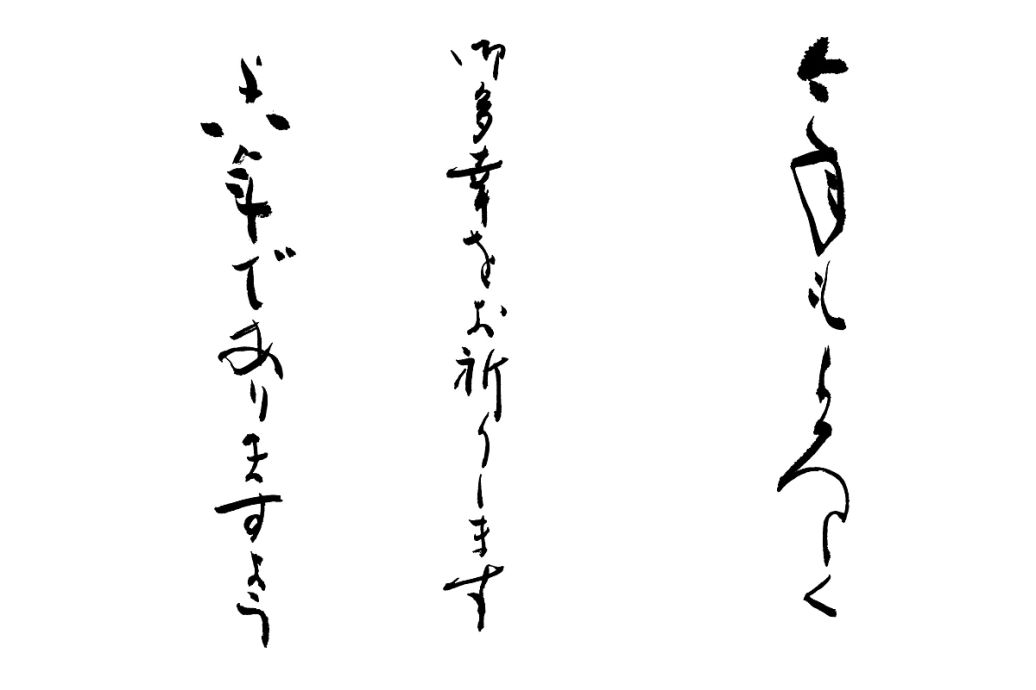 今年もよろしく
御多幸をお祈りします
よい年でありますよう